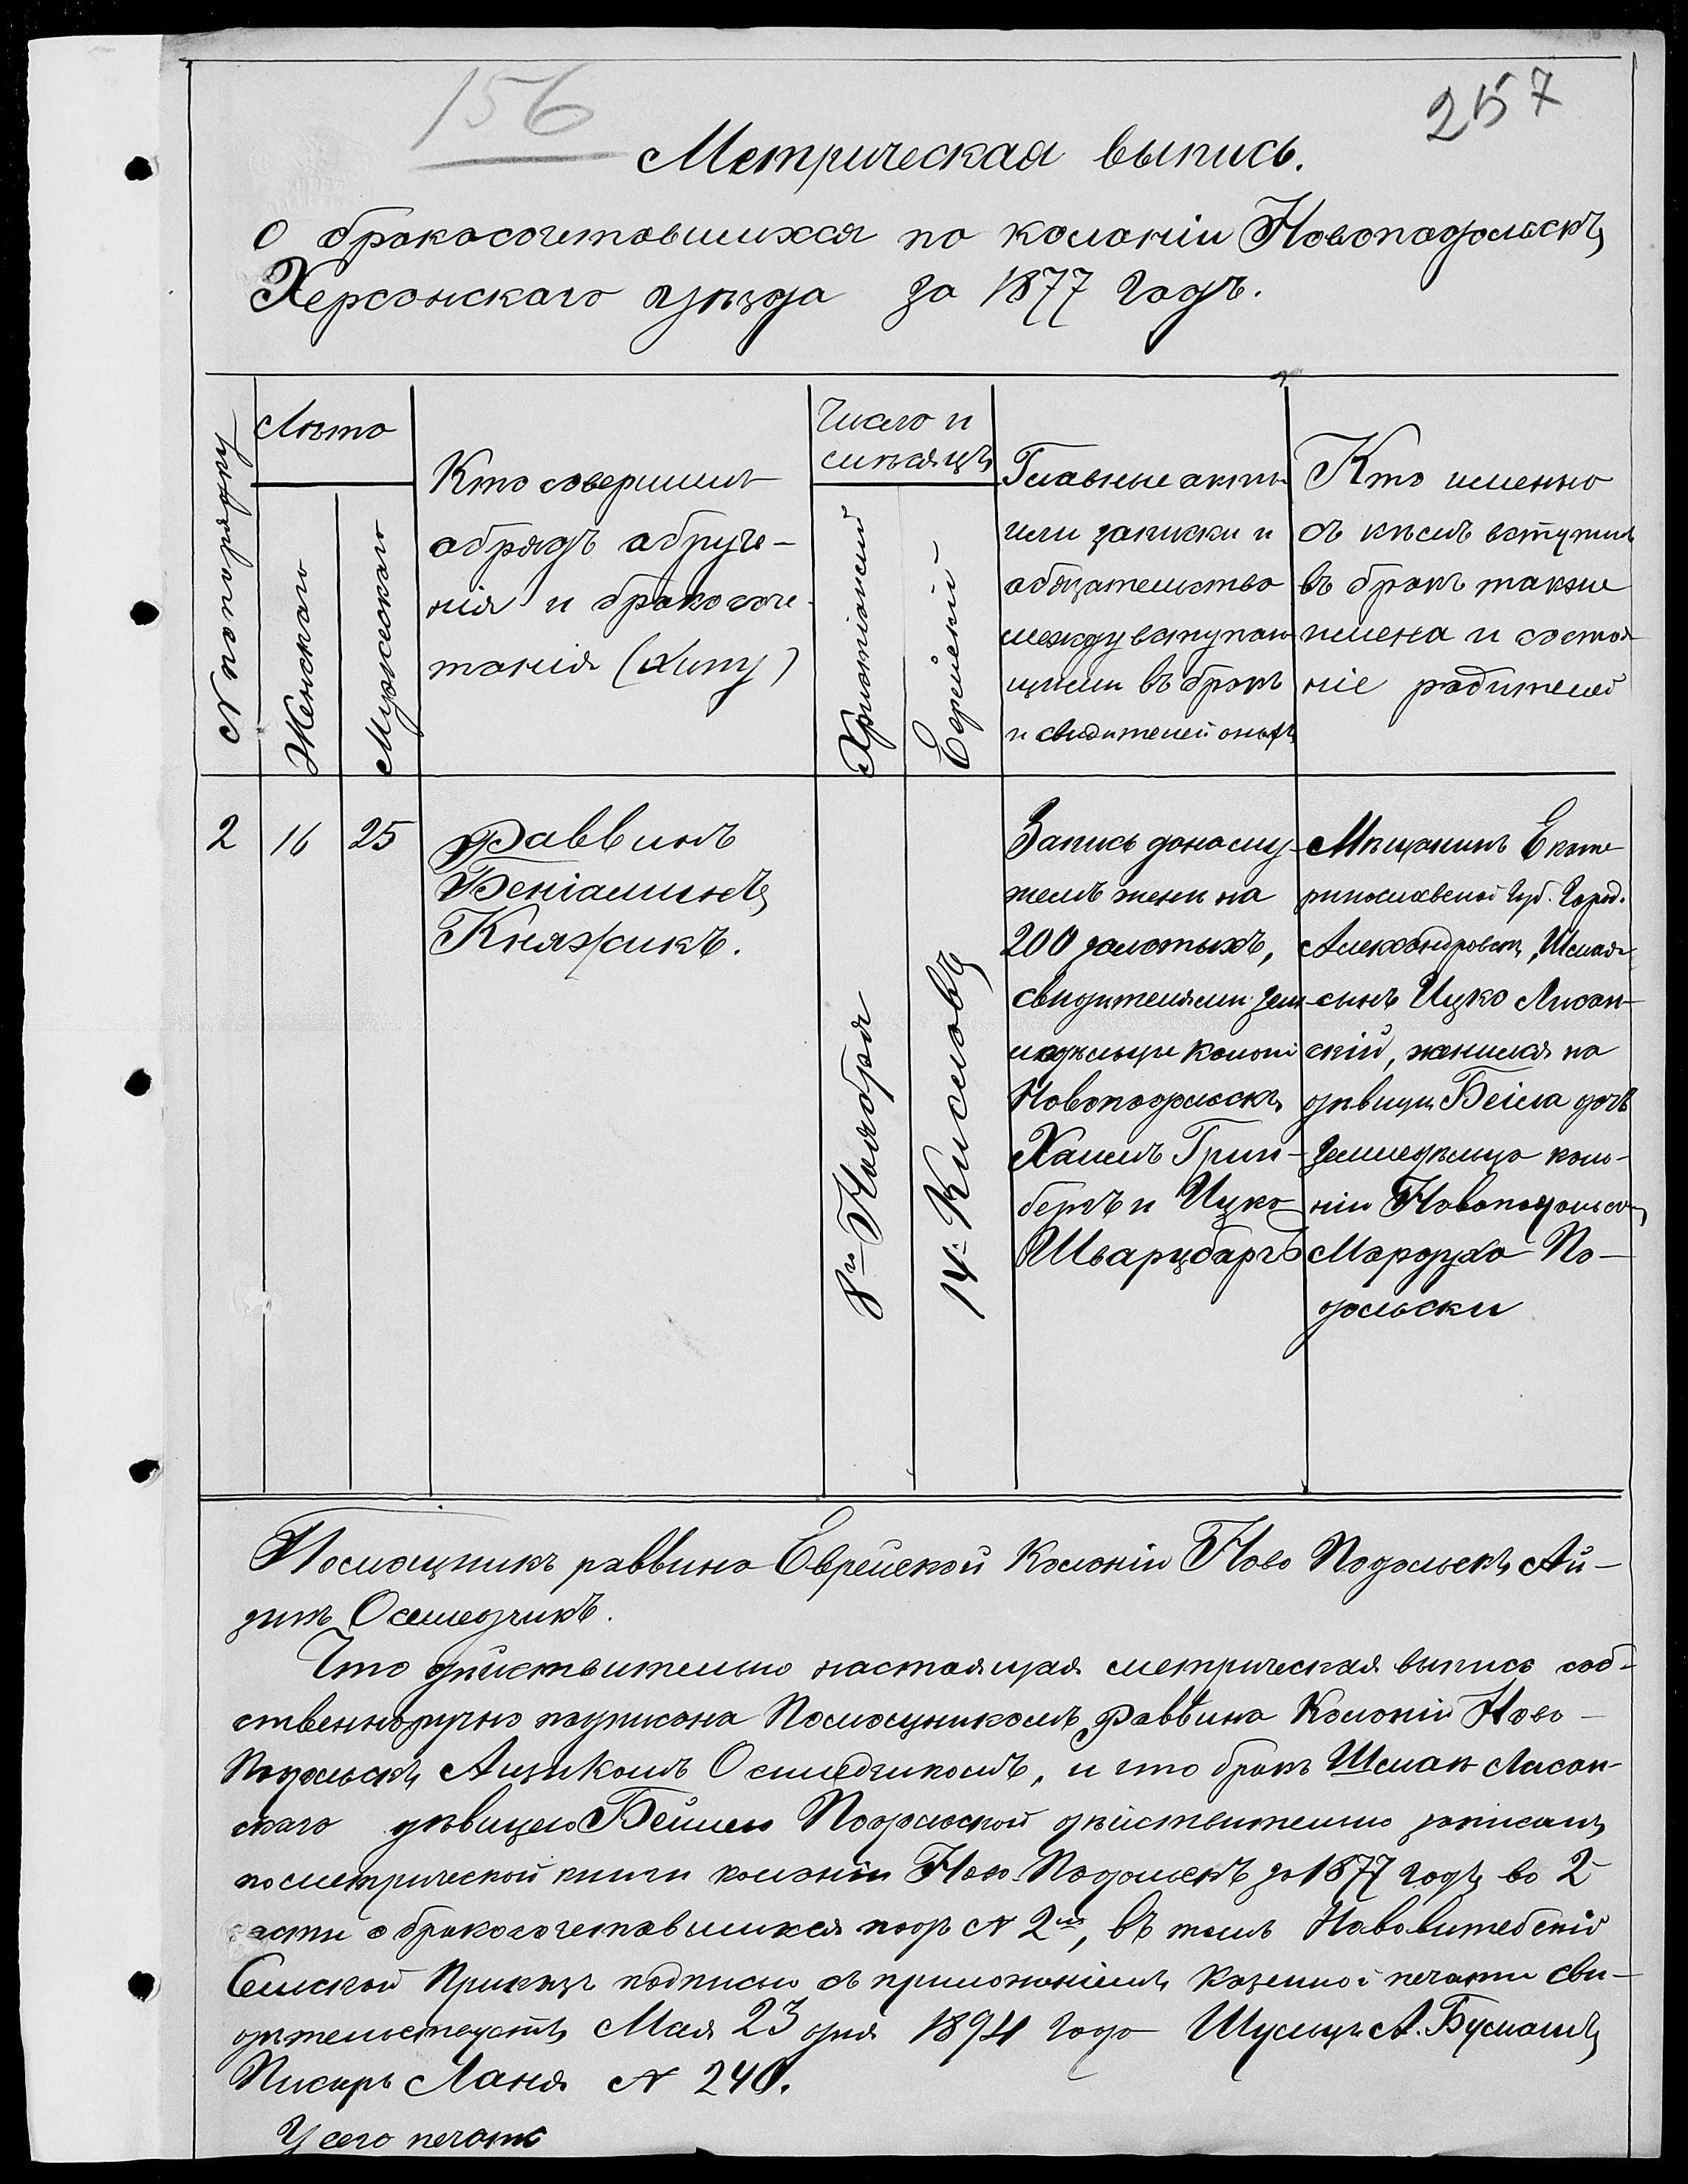 156
257
Метрическая выпись.
О бракосочетавшихся по колоніи Новоподольскъ
Херсонскаго уѣзда за 1877 годъ.
№ по порядку
Лѣта
Женскаго
Мужескаго
Кто совершилъ
обрядъ обруче-
нія и бракосоче-
танія (хипу)
Число и
мѣсяцъ
Христіанскій
Еврейскій
Главные акты
или записки и
обязательства
между вступаю
щими въ бракъ
и свидителей оныхъ
Кто именно
съ кѣмъ вступилъ
въ бракъ также
имена и состоя
ніе родителей
2
16
25
Раввинъ
Беніаминъ
Княжикъ.
8го Ноября
14 Кисловъ
Запись дана му-
жемъ жене на
200 золотыхъ,
свидителями зем-
ледѣльцы колоні
Новоподольскъ
Хаимъ Грин-
бергъ и Ицко
Шварцбаргъ
Мѣщанинъ Екате
ринославской Губ. Город.
Александровска, Шмая-
сынъ Ицко Лисан-
скій, женился на
дѣвицы Бейла дочь
Земледѣльца коло-
ніи Новоподольск
Мордуха По-
дольски
Помощникъ раввина Еврейской Колоніи Ново Подольскъ Ай-
зикъ Осмедчикъ.
Что дѣйствительно настоящая метрическая выпись соб-
ственноручно подписана Помощникомъ Раввина Колоніи Ново-
Подольскъ Айзикомъ Осмедчикомъ, и что бракъ Шмаи Лисан-
скаго дѣвицею Бейлею Подольской дѣйствительно записанъ
по метрической книги колоніи Ново-Подольскъ за 1877 годъ во 2
части о бракосочетавшихся подъ № 2мъ, въ томъ Нововитебскій
Сельской Приказъ подписью съ приложеніемъ казенной печати сви-
дѣтельствуетъ Мая 23 дня 1894 года Шульцъ А. Бусманъ
Писарь Ланя № 240.
У сего печать